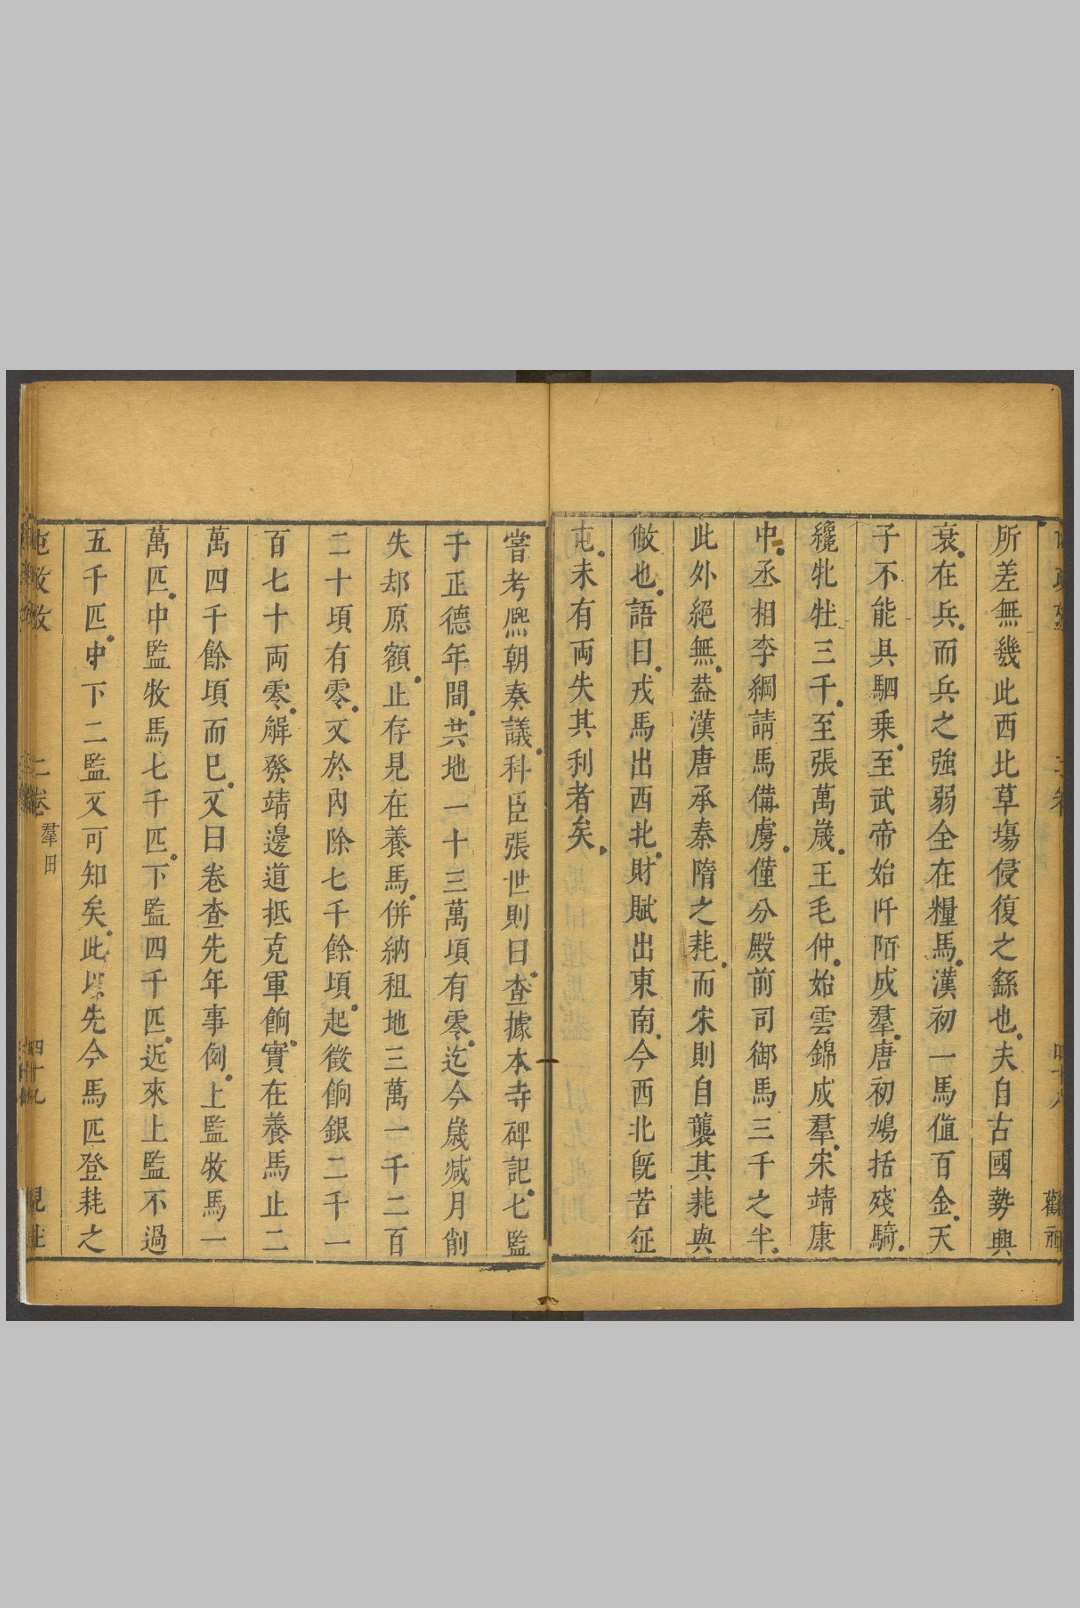 所差無幾此西北草塲侵復之繇也夫自古國勢興
衰在兵而兵之強弱全在糧馬漢初一馬值百金天
子不能具駟乘至武帝始阡陌成羣唐初鳩括殘騎
纔牝牡三千至張萬歲王毛仲始雲錦成羣宋靖康
中丞相李綱請馬備虜僅分殿前司御馬三千之半
此外絕無葢漢唐承秦隋之耗而宋則自襲其耗與
倣也語曰戎馬出西北財賦出東南今西北旣苦征
屯未有両失其利者矣
嘗考熈朝奏議科臣張世則曰查據本寺碑記七監
于正德年間共地一十三萬頃有零迄今歲减月削
失却原額止存見在養馬併納租地三萬一千二百
二十頃有零又於內除七千餘頃起徵餉銀二千一
百七十両零觧發靖邊道抵克軍餉實在養馬止二
萬四千餘頃而已又曰卷查先年事例上監牧馬一
萬匹中監牧馬七千匹下監四千匹近來上監不過
五千匹中下二監又可知矣此以先今馬匹登耗之
屯牧攷 二卷 羣田 四十九